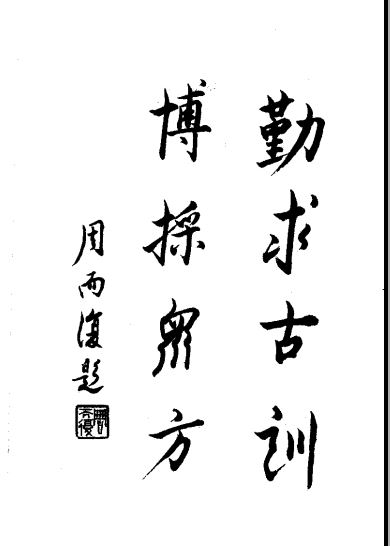 勤求古訓
博採眾方
周而復題